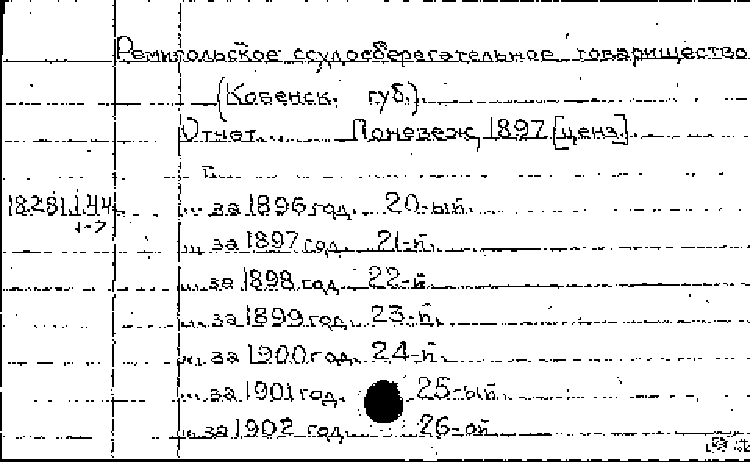 Ремигольское ссудосберегательное товарищество
(Ковенск. губ.).
Отчет... Поневеж, 1897 [ценз.].
18.281.1.44
1-7
... за 1896 год. 20-ый.
... за 1897 год. 21-й.
... за 1898 год. 22-й.
... за 1899 год. 23-й.
... за 1900 год. 24-й.
... за 1901 год. 25-ый.
... за 1902 год. 26-ой